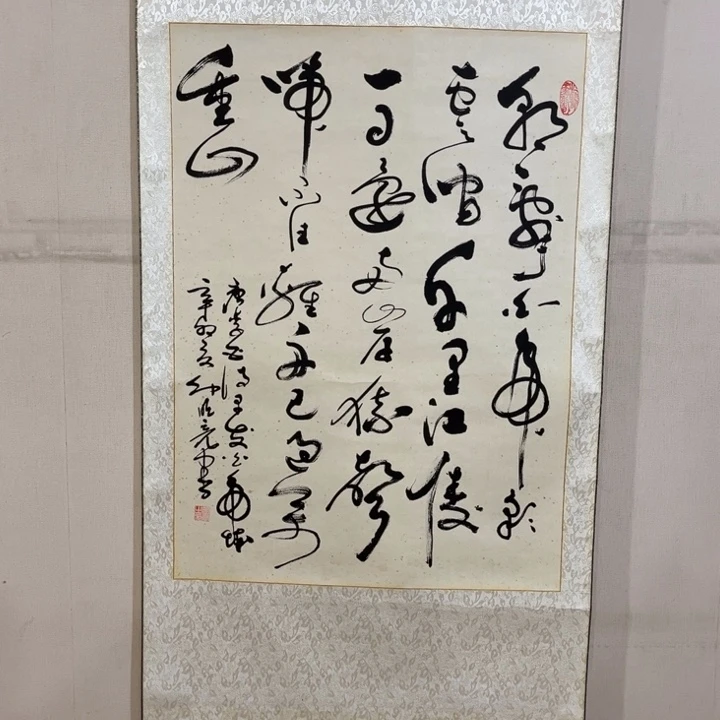 朝辭白帝彩
雲間千里江陵
一日還兩岸猿聲
啼不住輕舟已過萬
重山
唐李白詩早發白帝城
辛卯夏